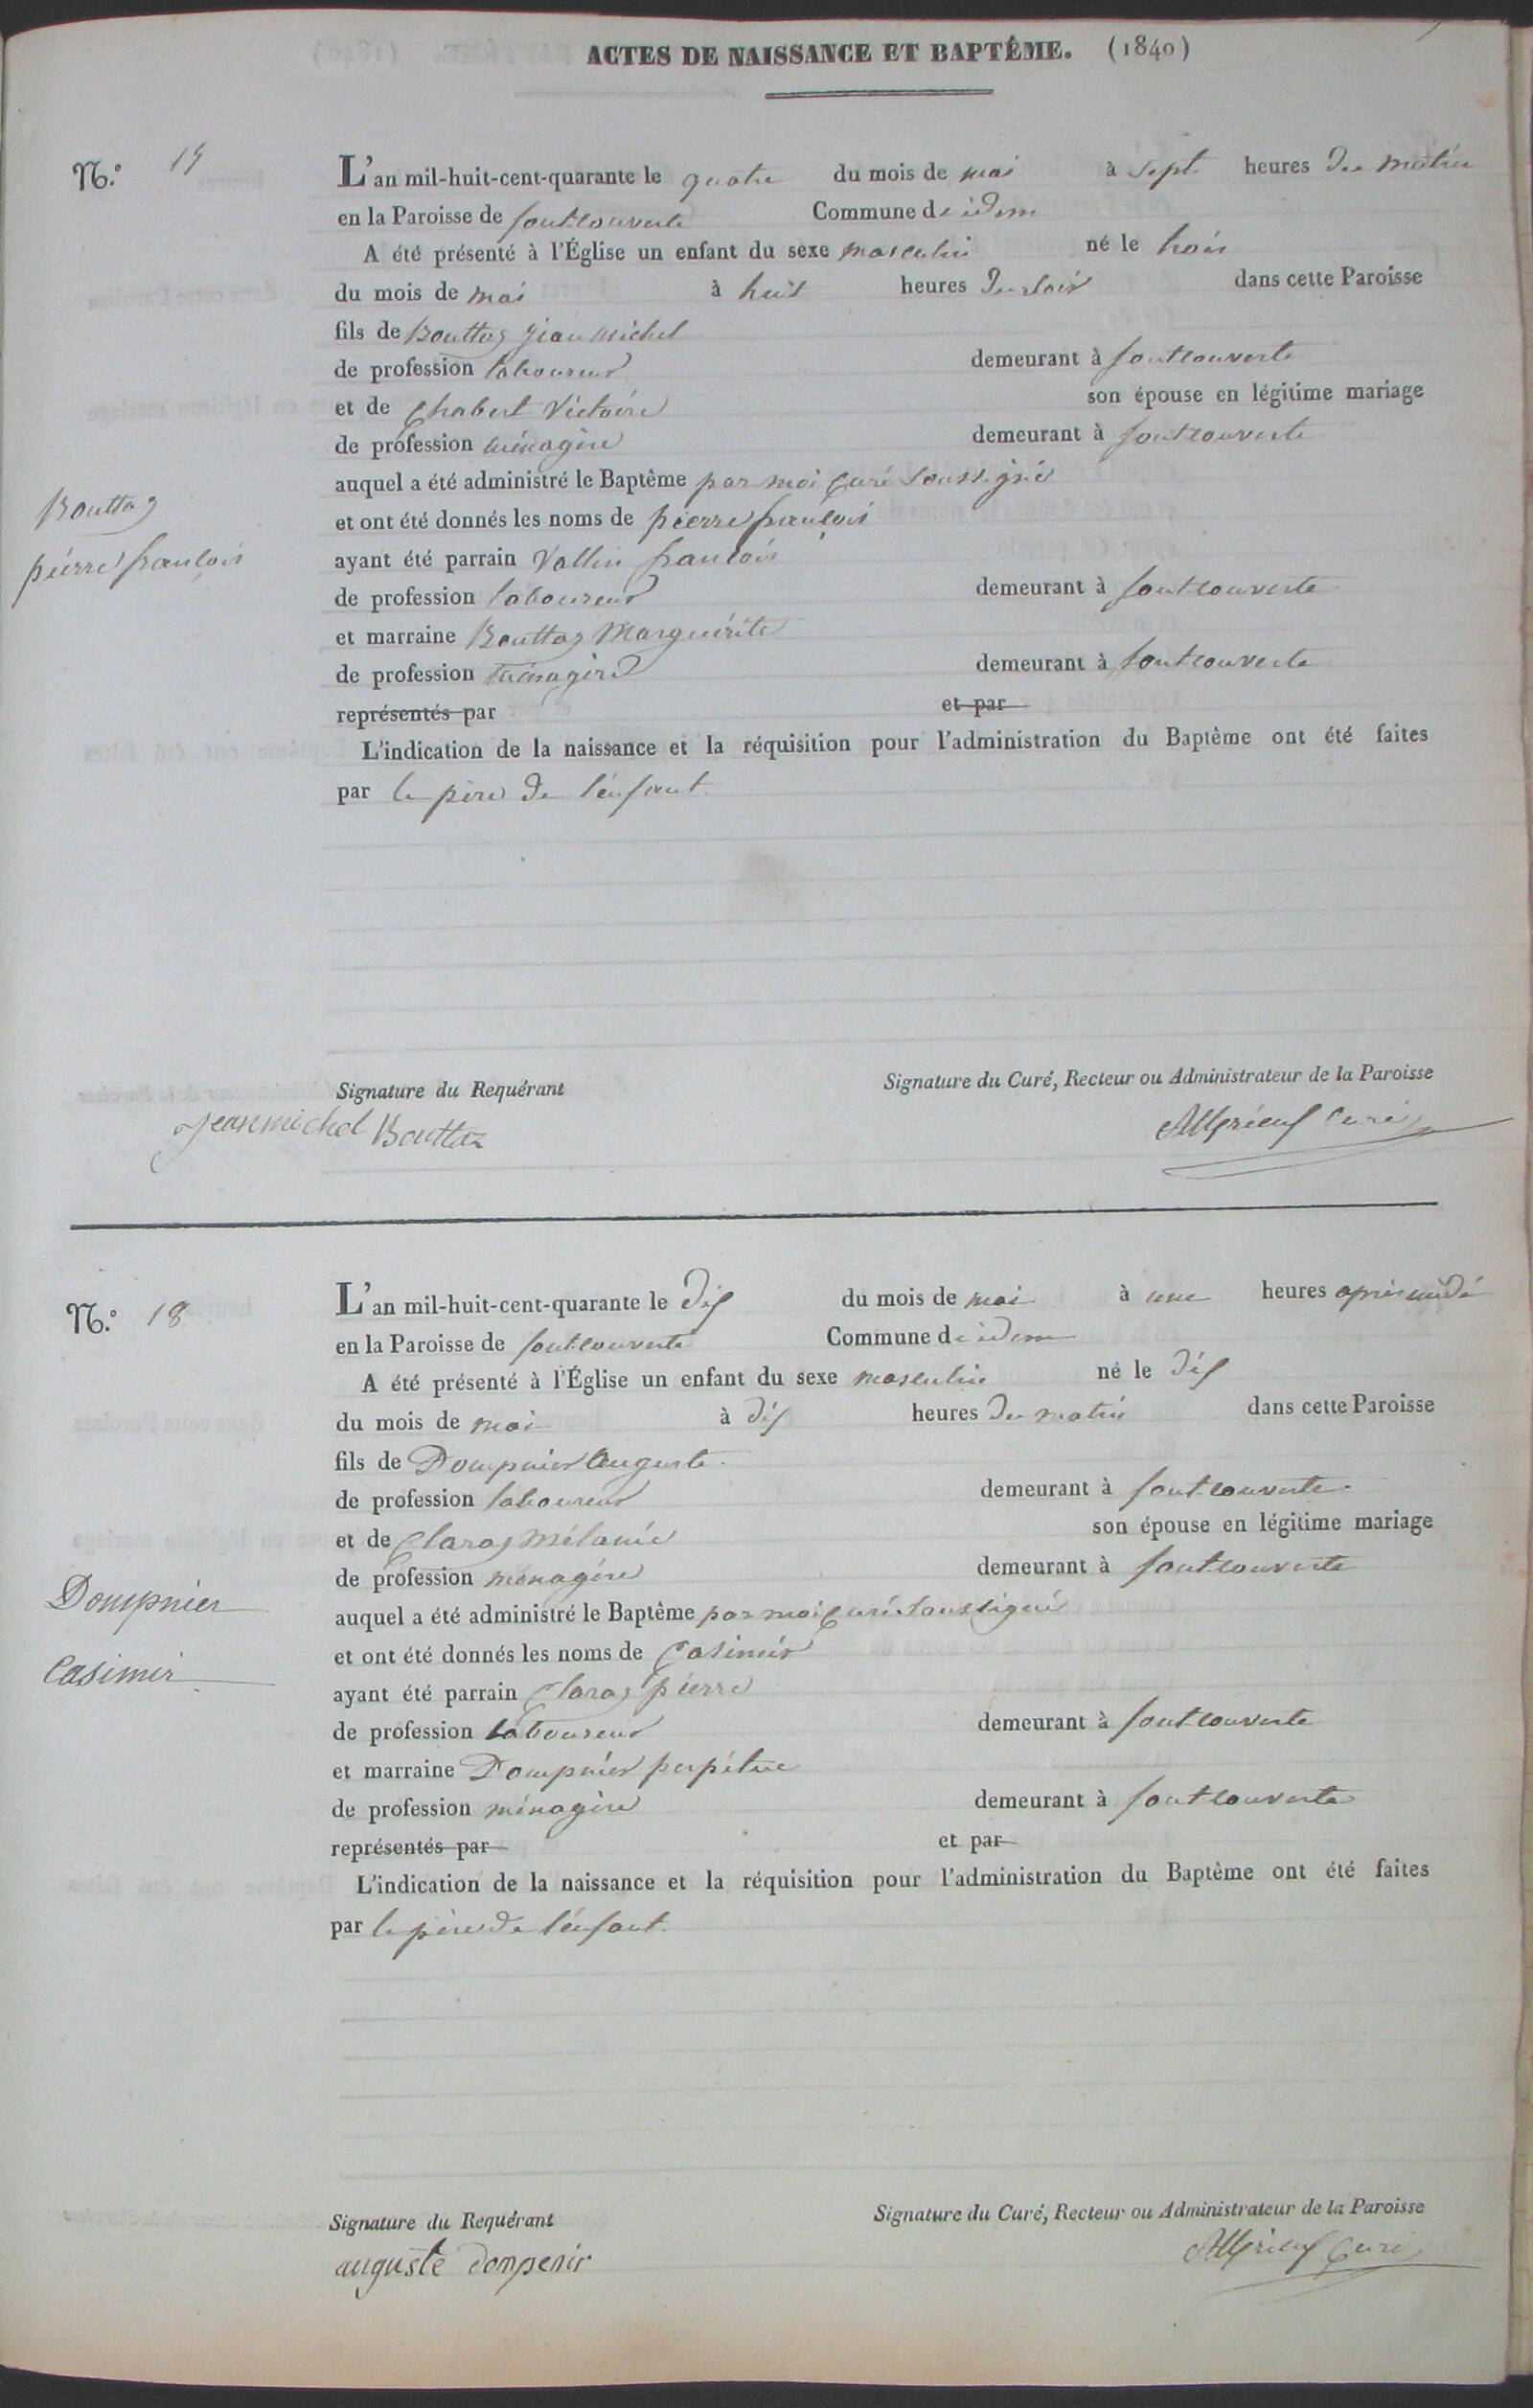 ACTES DE NAISSANCE ET BAPTÊME. (1840)
N.º
L'an mil-huit-cent-quarante le quatre du mois de mai à sept heures du matin
en la Paroisse de fontcouverte Commune de idem
A été présenté à l'Église un enfant du sexe masculin né le trois
du mois de mai à huit heures du soir dans cette Paroisse
fils de Bouttaz jean michel
de profession laboureur demeurant à fontcouverte
et de Chabert Victoire son épouse en légitime mariage
de profession ménagère demeurant à fontcouverte
auquel a été administré le Baptême par moi curé soussigné
Bouttaz
et ont été donnés les noms de pierre françois
pierre françois
ayant été parrain Vallin françois
de profession laboureur demeurant à fontcouverte
et marraine Bouttaz Marguérite
de profession ménagère demeurant à fontcouverte
représentés par et par
L'indication de la naissance et la réquisition pour l'administration du Baptême ont été faites
par le père de l'enfant
Signature du Requérant Signature du Curé, Recteur ou Administrateur de la Paroisse
jeanmichel Bouttaz curé
N.º 18
L'an mil-huit-cent-quarante le dix du mois de mai à une heures après midi
en la Paroisse de fontcouverte Commune de idem
A été présenté à l'Église un enfant du sexe masculin né le dix
du mois de mai à dix heures du matin dans cette Paroisse
fils de Dompnier Auguste
de profession laboureur demeurant à fontcouverte
et de Claraz Mélanie son épouse en légitime mariage
de profession ménagère demeurant à fontcouverte
Dompnier
auquel a été administré le Baptême par moi curé soussigné
et ont été donnés les noms de Casimir
Casimir
ayant été parrain Claraz pierre
de profession laboureur demeurant à fontcouverte
et marraine Dompnier perpétue
de profession ménagère demeurant à fontcouverte
représentés par et par
L'indication de la naissance et la réquisition pour l'administration du Baptême ont été faites
par le père de l'enfant
Signature du Requérant Signature du Curé, Recteur ou Administrateur de la Paroisse
auguste dompenir curé